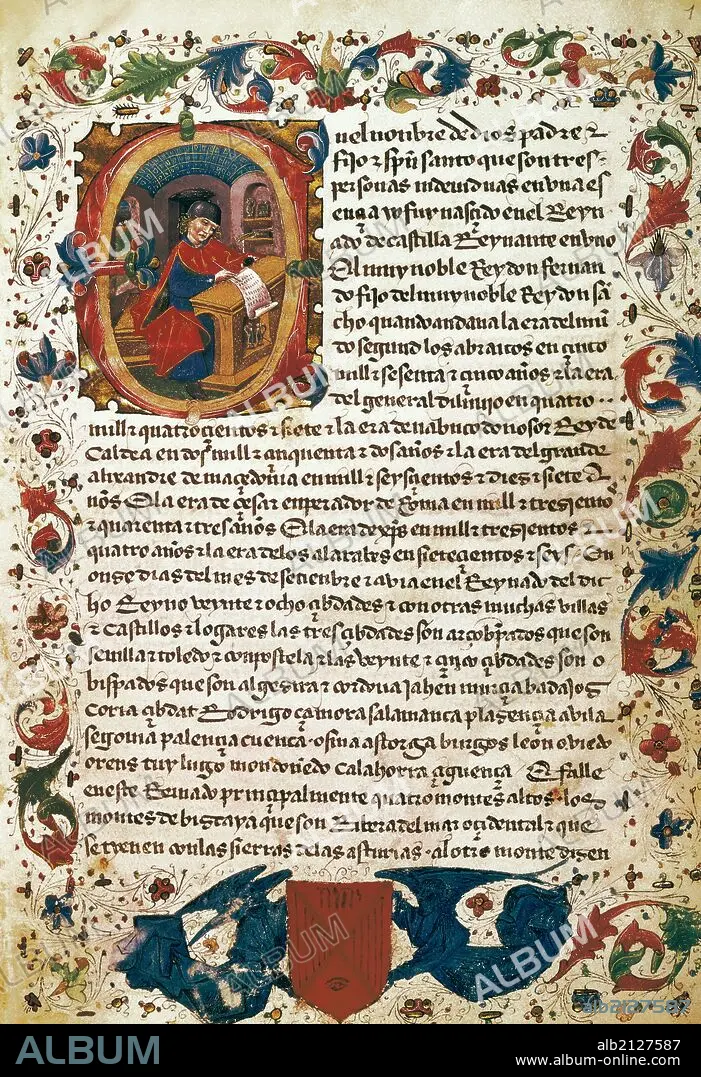 1
nel nonbre de dios padre ⁊
fijo ⁊ spũ santo que son tres
personas indeuiduas en vna es
ençia yo fuy nasçido en el Reyn
ado de castilla Reynante en vno
El muy noble Rey don fernan
do fijo del muy noble Rey don sã
cho quando andaua la era del mũ
do segund los abraicos en çinco
mill ⁊ sesenta ⁊ çinco años ⁊ la era
del general diluuio en quatro
mill ⁊ quatroçientos ⁊ siete ⁊ la era de nabucodonosor Rey de
Caldea en dos mill ⁊ çinquenta ⁊ dos años ⁊ la era del grande
alixandre de maçedonia en mill ⁊ seysçientos ⁊ diez ⁊ siete
años E la era de çesar enperador de Roma en mill ⁊ trezientos
⁊ quarenta ⁊ tres años E la era de xp̃s en mill ⁊ trezientos ⁊
quatro años ⁊ la era de los alarabes en sieteçientos ⁊ seys En
onze dias del mes de setienbre ⁊ auia en el Reynado del dic
ho Reyno veynte ⁊ ocho çibdades ⁊ con otras muchas villas
⁊ Castillos ⁊ logares las tres çibdades son arçobpados que son
seuilla ⁊ toledo ⁊ conpostela ⁊ las veynte ⁊ çinco çibdades son o
bispados que son algezira ⁊ cordoua jahen murçia badajoz
Coria çibdat Rodrigo çamora salamanca plazençia auila
segouia palençia cuenca osma astorga burgos leon ouiedo
orens tuy lugo mondoñedo Calahorra çiguença E falle
en este Reinado prinçipalmente quatro montes altos los
montes de bizcaya que son Ribera del mar oçidental ⁊ que
se tyenen con las sierras de las asturias al otro monte dizen
ALBUM
alb2127587
ALBUM
alb2127587
www.album-online.com